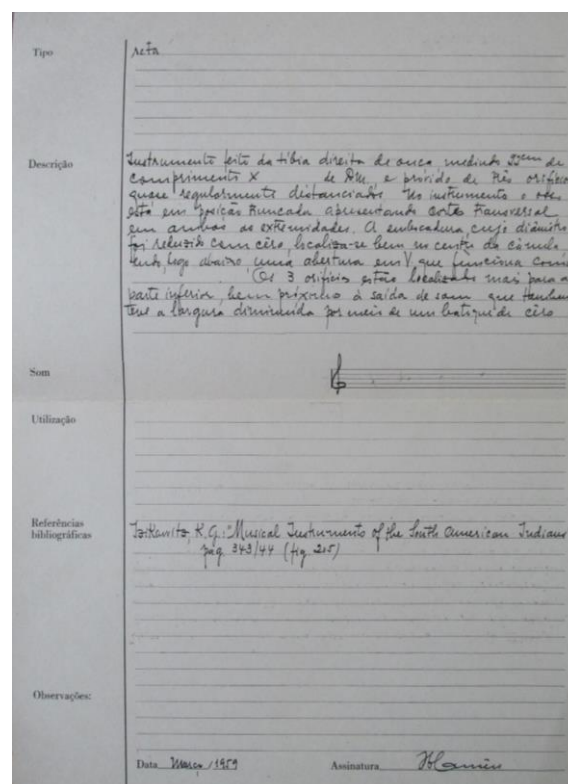 Tipo
Descrição
Instrumento feito da tíbia direita de onça medindo 22cm de
comprimento X de DM. e provido de três orifícios
quase regularmente distanciados. No instrumento o osso
está em posição truncada apresentando corte transversal
em ambas as extremidades. A embocadura, cujo diâmetro
foi reduzido com cêro, localiza-se bem no centro do
tendo, logo abaixo uma abertura em V, que funciona como
. (Os 3 orifícios estão localizados mais para a
parte inferior, bem próximo à saída de som que também
teve a largura diminuída por meio de um de cêro
Som
Utilização
Referências
bibliográficas
Izikowitz, K.G.: "Musical Instruments of the South American Indians
pág. 343/44 (fig. 205)
Observações:
Data Março/1959 Assinatura